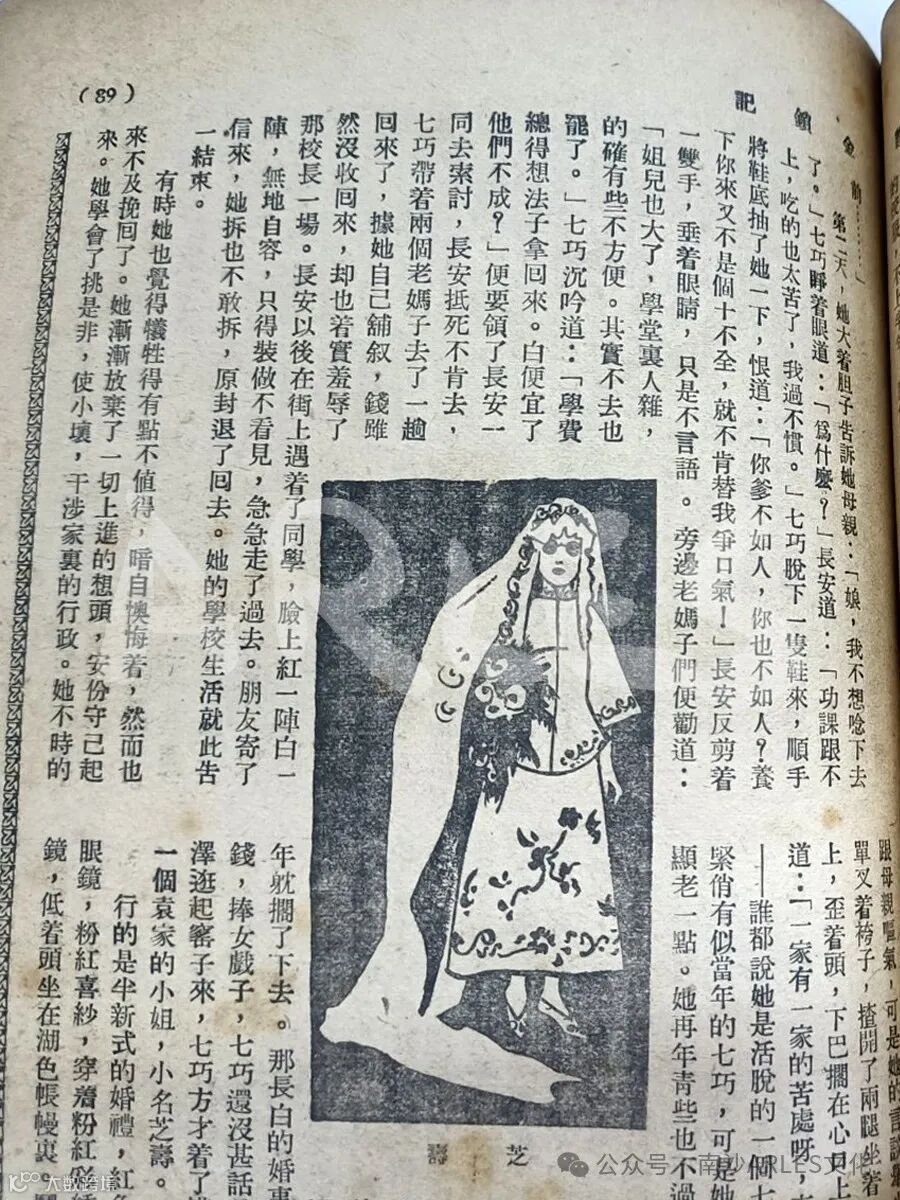 金鎖記
(89)
前……」
第二天，她大着胆子告訴她母親：「娘，我不想唸下去
了。」七巧睜着眼道：「爲什麼？」長安道：「功課跟不
上，吃的也太苦了，我過不慣。」七巧脫下一隻鞋來，順手
將鞋底抽了她一下，恨道：「你爹不如人，你也不如人？養
下你來又不是個十不全，就不肯替我爭口氣！」長安反剪着
一雙手，垂着眼睛，只是不言語。旁邊老媽子們便勸道：
「姐兒也大了，學堂裏人雜，
的確有些不方便。其實不去也
罷了。」七巧沉吟道：「學費
總得想法子拿回來。白便宜了
他們不成？」便要領了長安一
同去索討，長安抵死不肯去，
七巧帶着兩個老媽子去了一趟
回來了，據她自己舖叙，錢雖
然沒收回來，却也着實羞辱了
那校長一場。長安以後在街上遇着了同學，臉上紅一陣白一
陣，無地自容，只得裝做不看見，急急走了過去。朋友寄了
信來，她拆也不敢拆，原封退了回去。她的學校生活就此告
一結束。
有時她也覺得犧牲得有點不値得，暗自懊悔着，然而也
來不及挽回了。她漸漸放棄了一切上進的想頭，安份守己起
來。她學會了挑是非，使小壞，干涉家裏的行政。她不時的
跟母親嘔氣，可是她的言談
單叉着袴子，揸開了兩腿坐着
上，歪着頭，下巴擱在心口上
道：「一家有一家的苦處呀，
——誰都說她是活脫的一個七
緊俏有似當年的七巧，可是她
顯老一點。她再年青些也不過
芝壽
年躭擱了下去。那長白的婚事
錢，捧女戲子，七巧還沒甚話
澤逛起窰子來，七巧方才着了
一個袁家的小姐，小名芝壽。
行的是半新式的婚禮，紅色
眼鏡，粉紅喜紗，穿着粉紅彩
鏡，低着頭坐在湖色帳幔裏。
公众号·南沙ARLES文化
大数跨境
ARLE